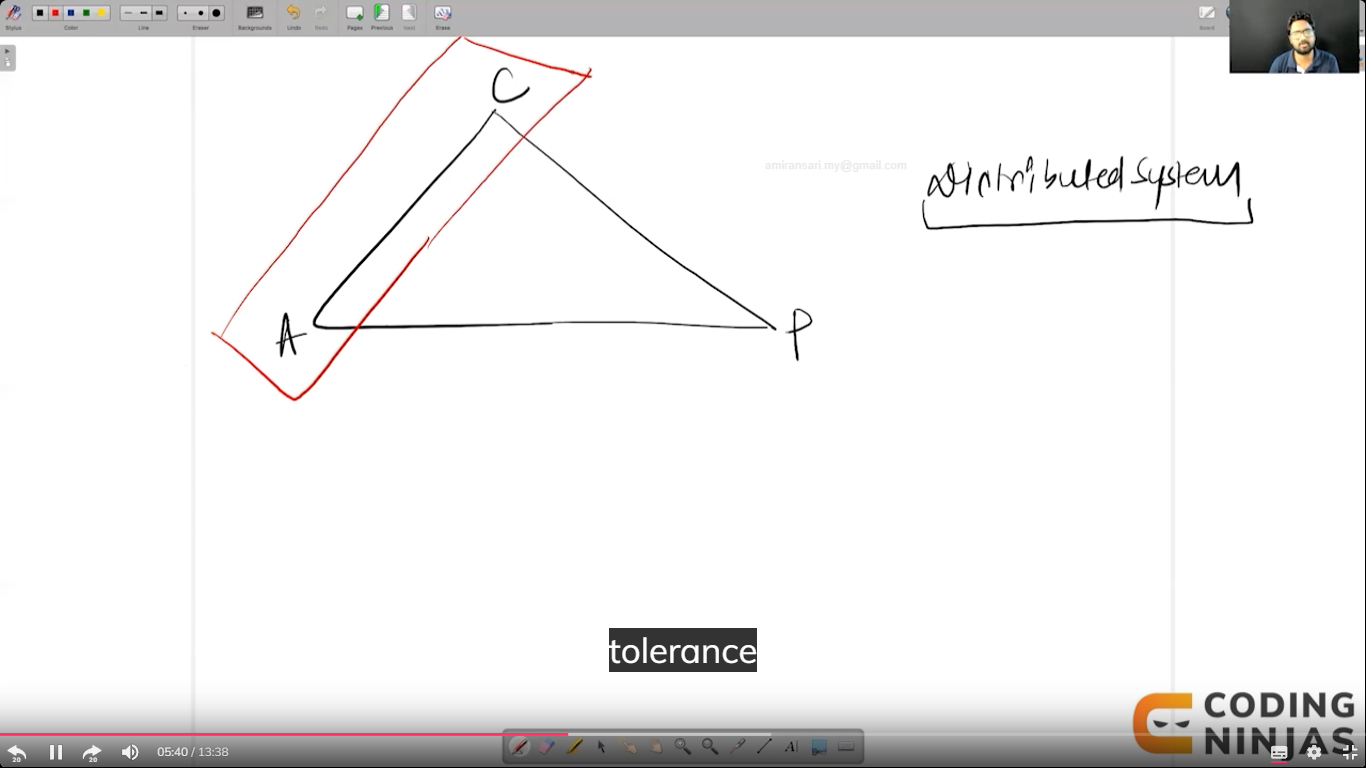 Stylus
Color
Line
Eraser
Backgrounds
Undo
Redo
Pages
Previous
Next
Erase
Board
C
amiransari.my@gmail.com
Distributed System
A
P
tolerance
CODING
NINJAS
20
20
05:40 / 13:38
A